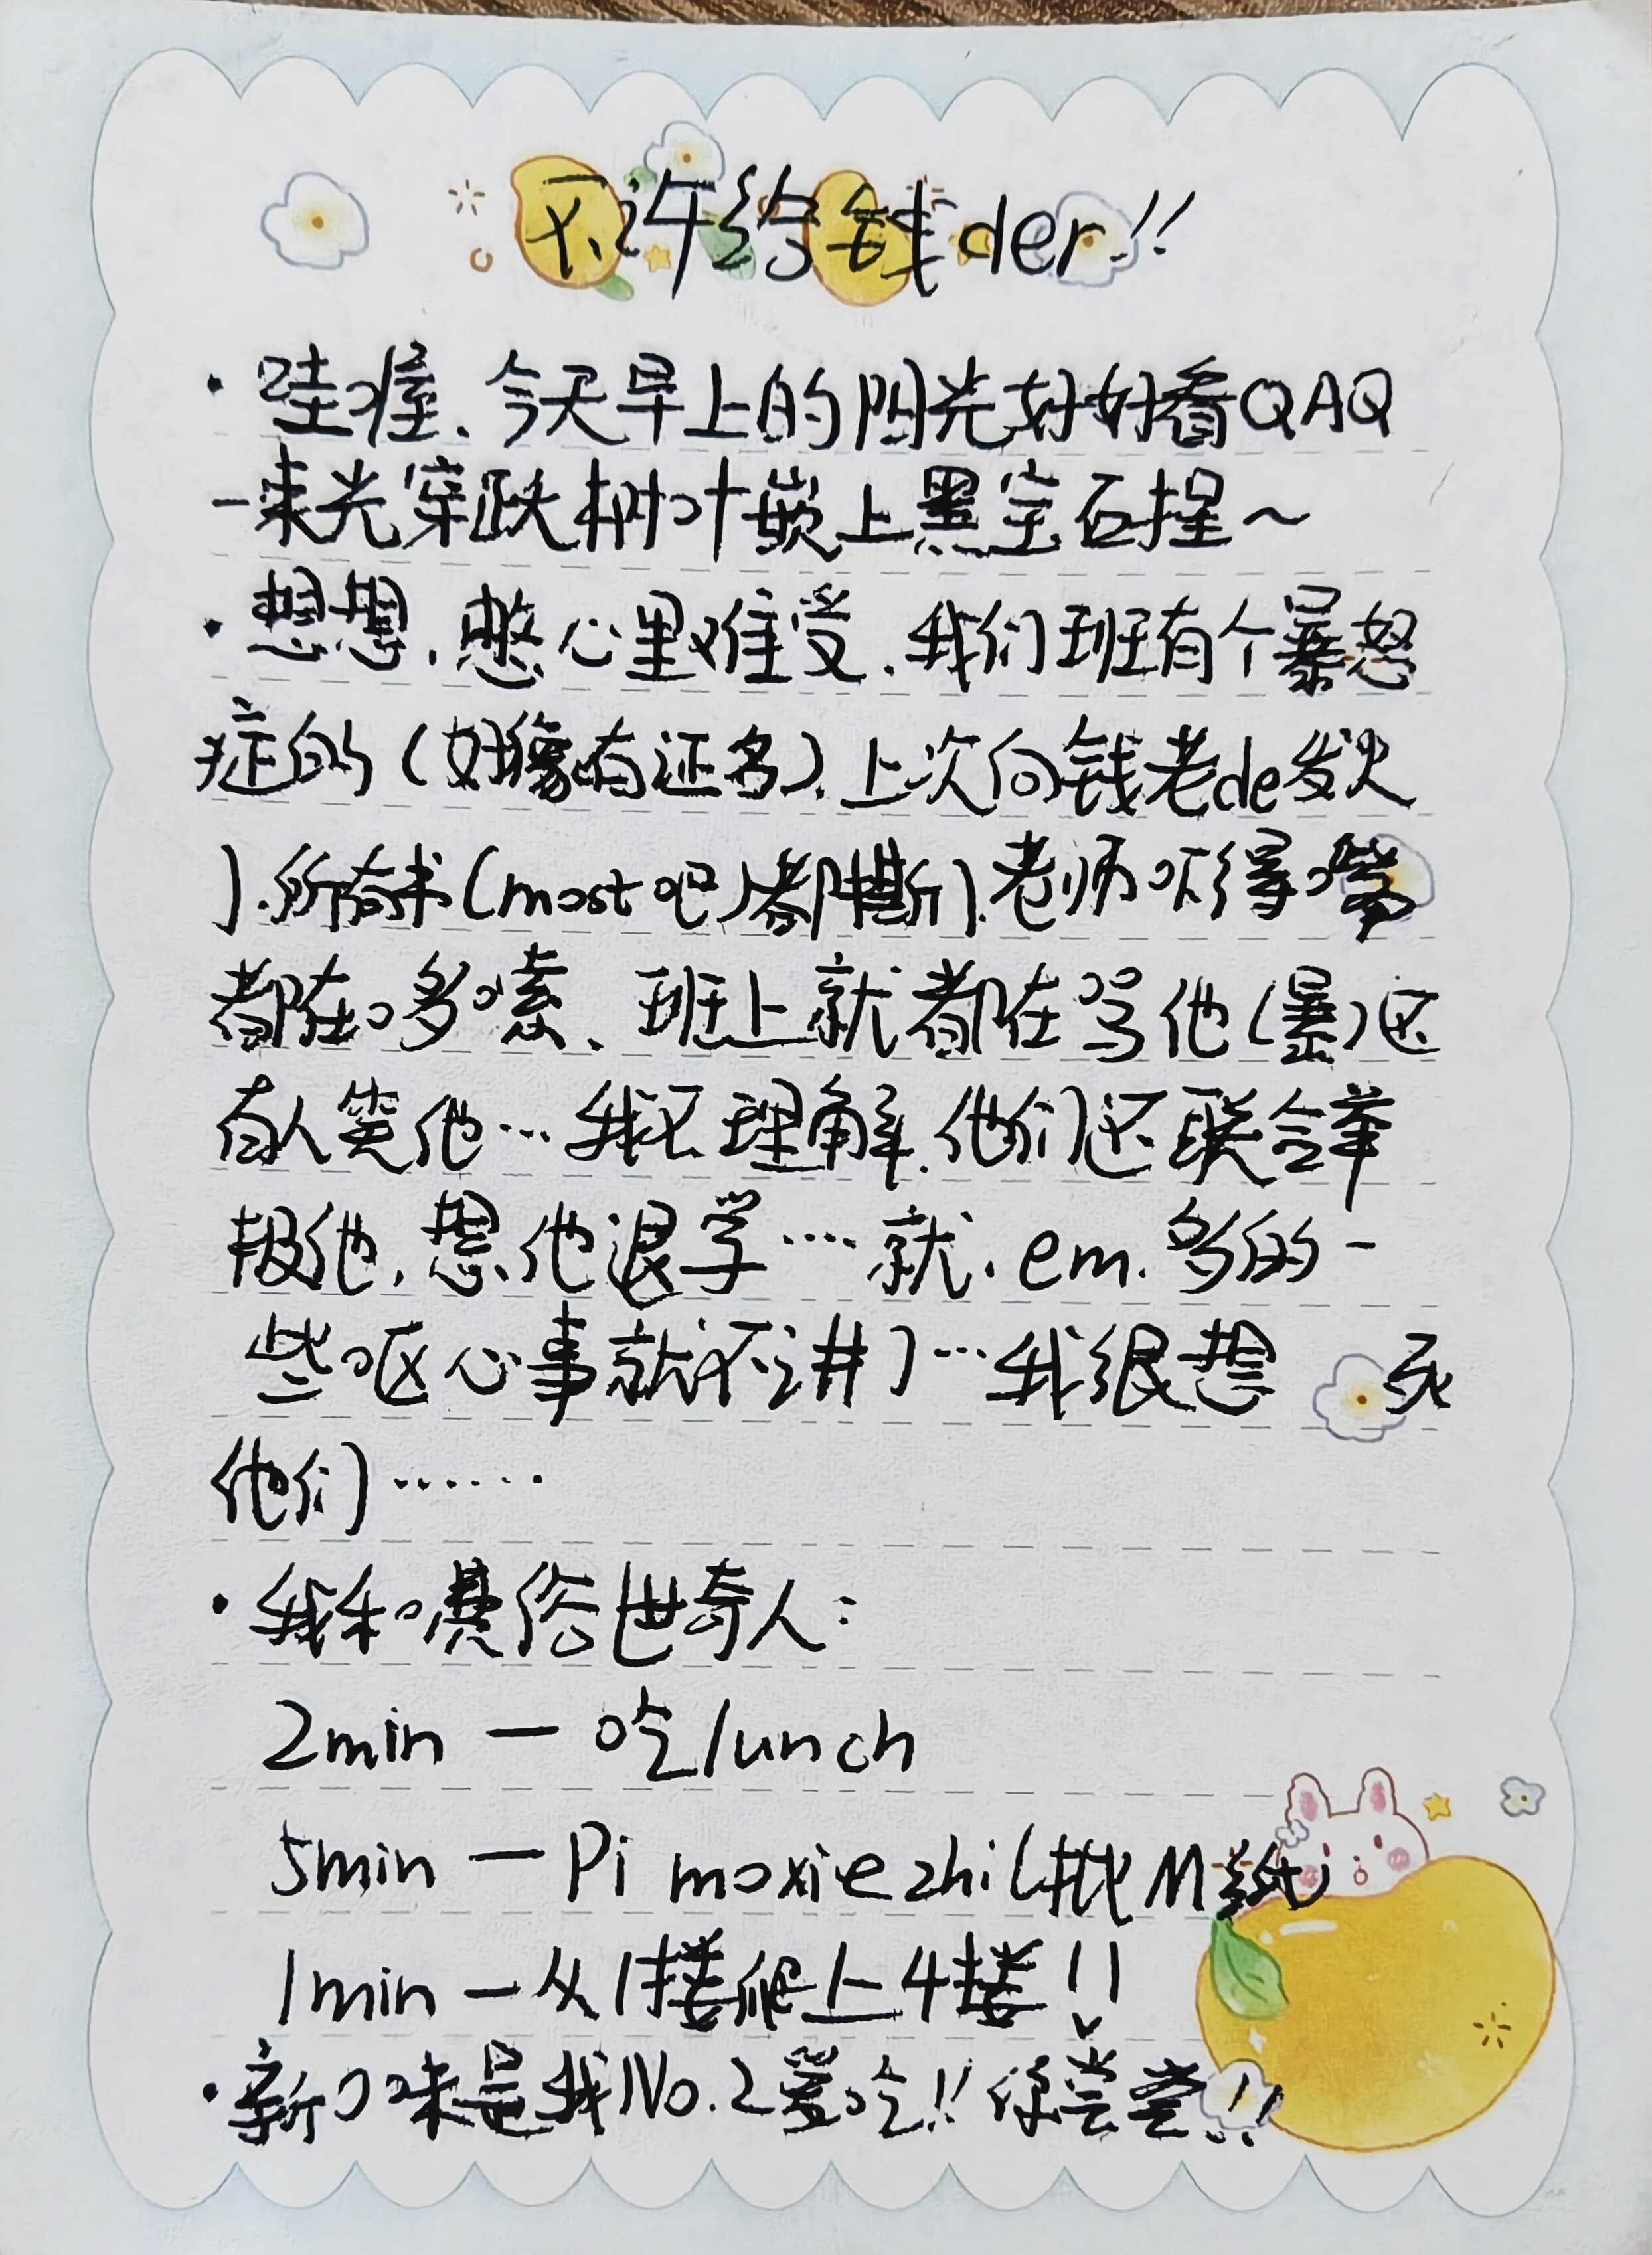 不许给钱der!!
·哇噻、今天早上的阳光好好看QAQ
一束光穿跃树叶嵌上黑宝石捏～
·想想，憋心里难受．我们班有个暴怒
症的（好像有证多）．上次向钱老de发火
了．所有书（most吧）都撕了．老师吓得嘴
都在哆嗦、班上就都在骂他（暴）还
有人笑他…我不理解．他们还联合举
报他，想他退学…．就．em．多的一
些呕心事就不讲了…我很想 死
他们……
·我和噢俗世奇人：
2min — 吃lunch
5min — Pi moxie zhi（批M纸
1min — 从1楼爬上4楼!!
·新口味是我No.2爱吃!!你尝尝!!